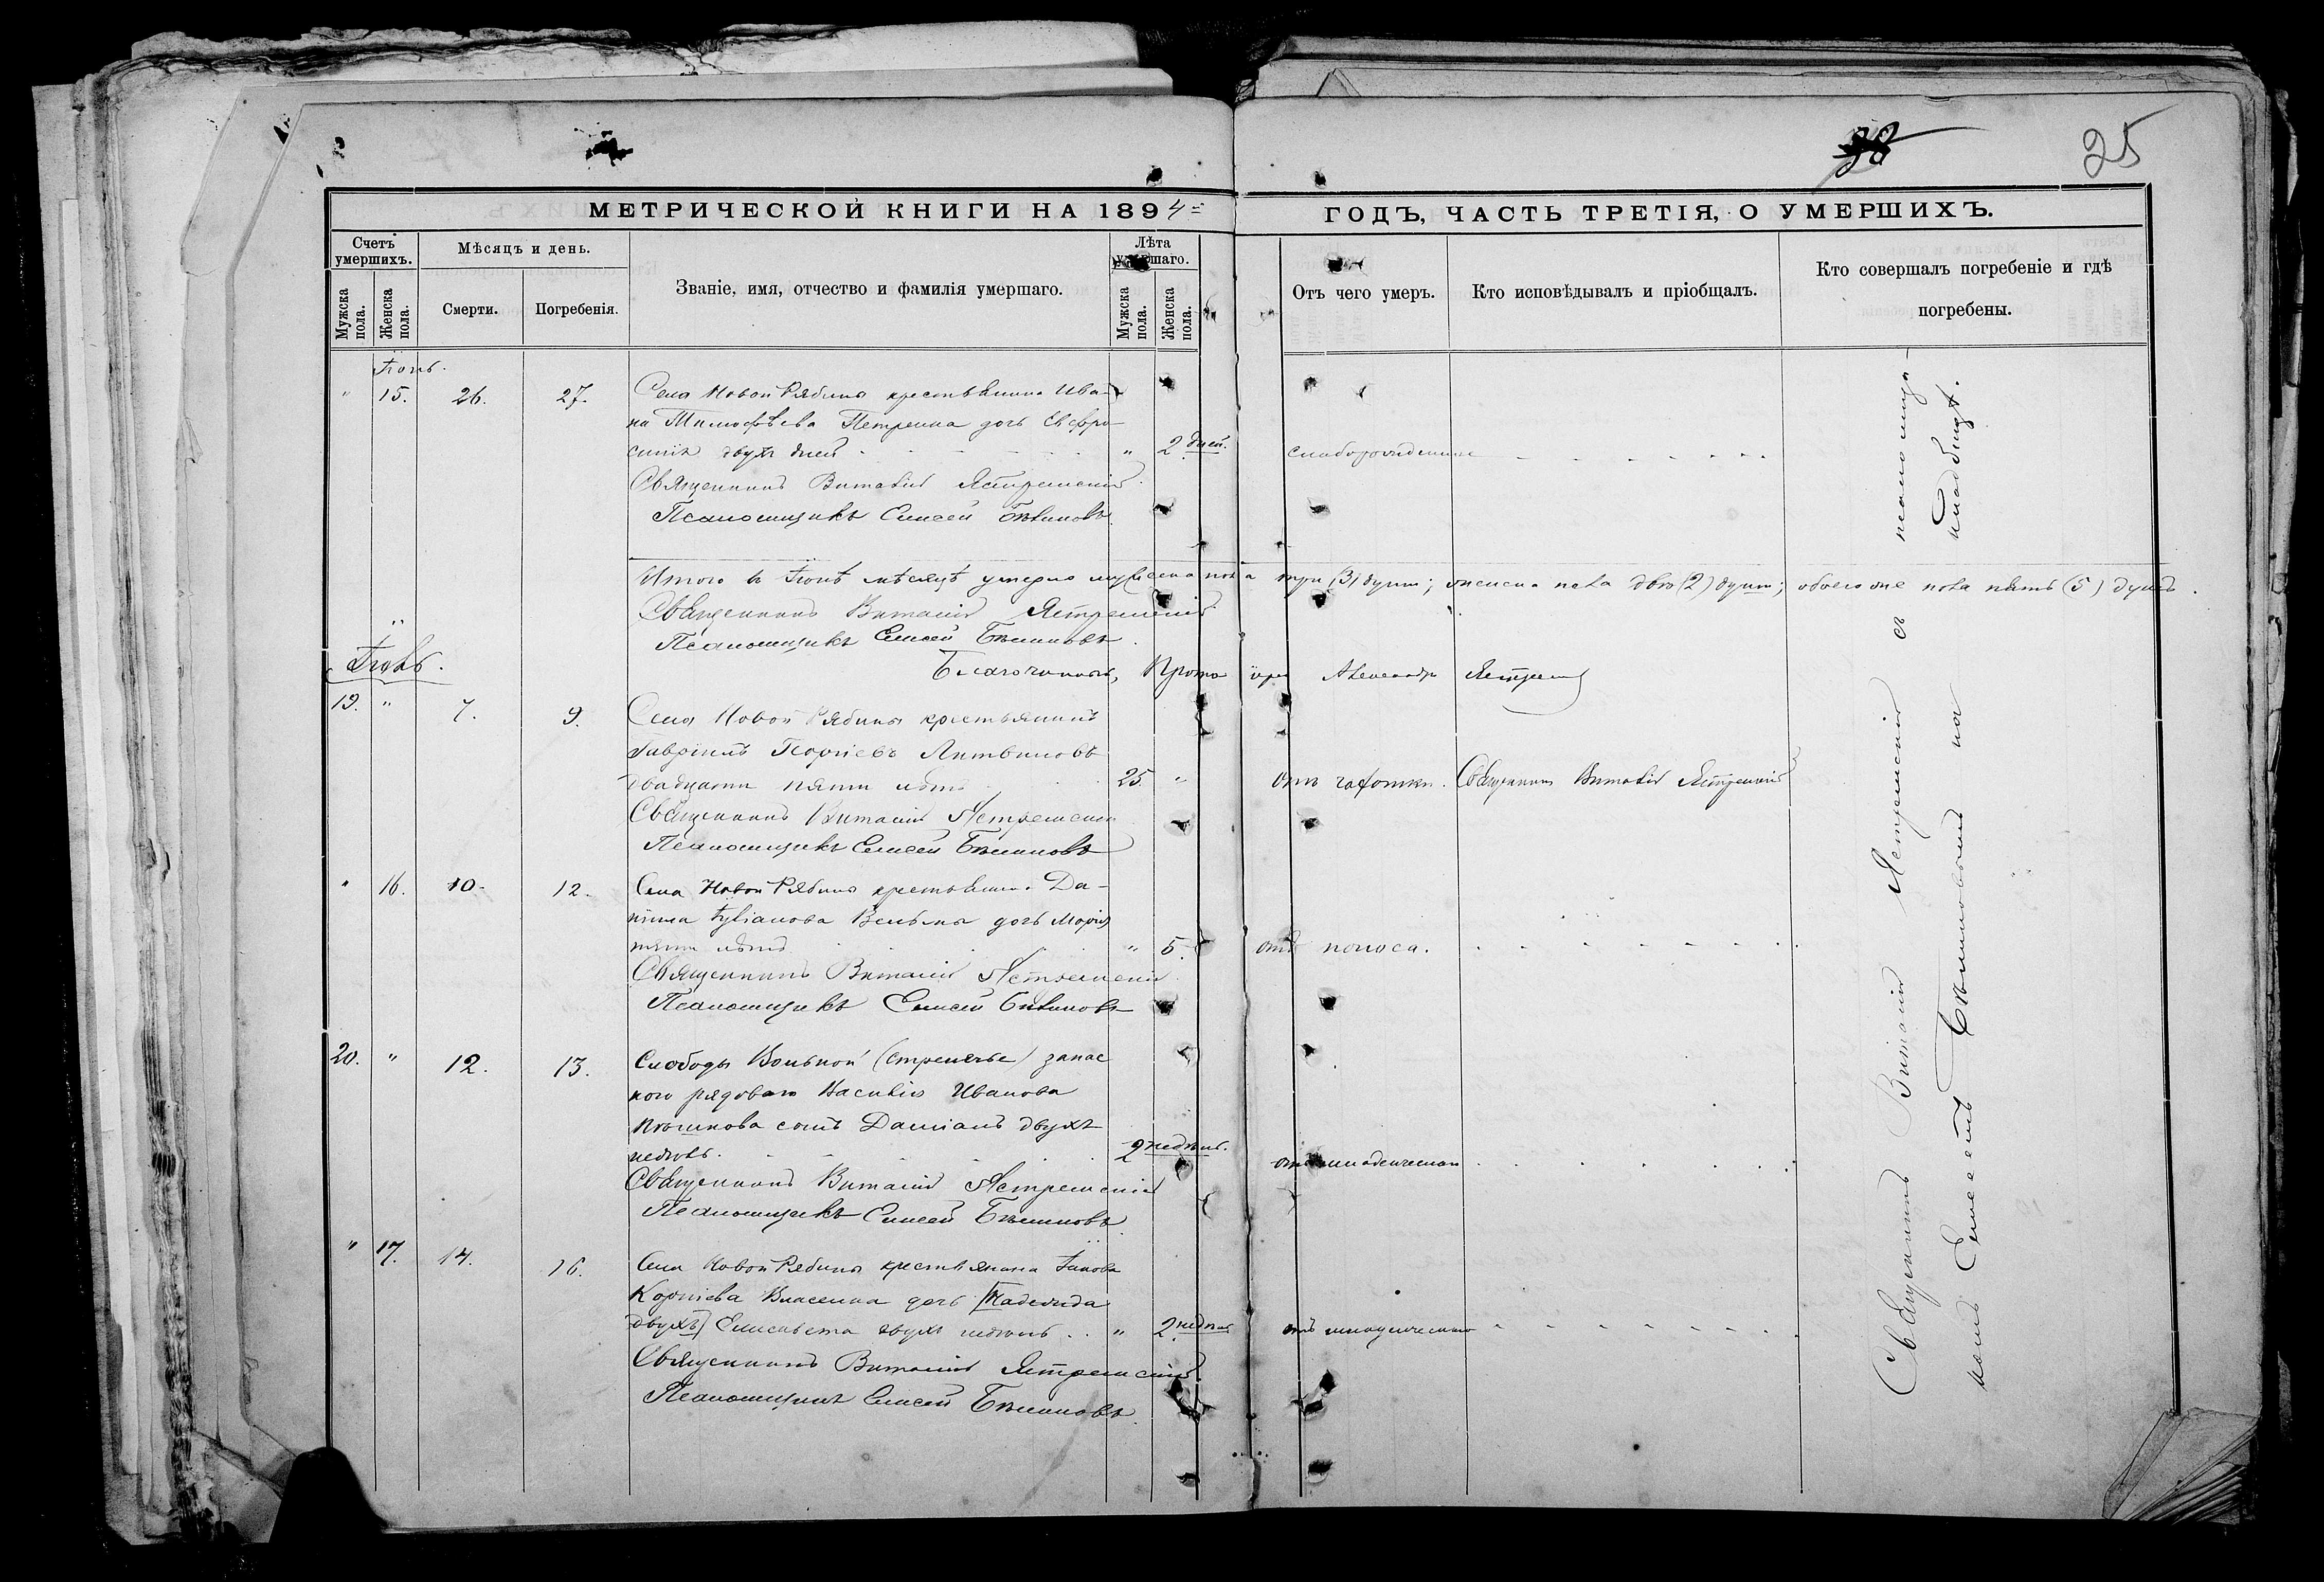 25
МЕТРИЧЕСКОЙ КНИГИ НА 1894 ГОДЪ, ЧАСТЬ ТРЕТІЯ, О УМЕРШИХЪ.
Счетъ умершихъ.
Мѣсяцъ и день.
Званіе, имя, отчество и фамилія умершаго.
Лѣта умершаго.
Отъ чего умеръ.
Кто исповѣдывалъ и пріобщалъ.
Кто совершалъ погребеніе и гдѣ погребены.
Мужска пола.
Женска пола.
Смерти.
Погребенія.
Мужска пола.
Женска пола.
Іюнь.
" 15. 26. 27. Села Новой Рябины крестьянина Ива-
на Тимоѳѣева Петренка дочь Евфро-
синія двухъ дней " 2 дней.
Священникъ Виталій Ястремскій
Псаломщикъ Елисей
Итого въ Іюнѣ мѣсяцѣ умерло мужеска пола три (3) души; женска пола двѣ (2) души; обоего же пола пять (5) душъ.
Священникъ Виталій Ястремскій
Псаломщикъ Елисей
Благочинный, Прото іерей Александръ
Іюль.
19. " 7. 9. Села Новой Рябины крестьянинъ
Гавріилъ Литвиновъ
двадцати пяти лѣтъ 25. " отъ чахотки. Священникъ Виталій Ястремскій
Священникъ Виталій Ястремскій
Псаломщикъ Елисей
" 16. 10. 12. Села Новой Рябины крестьянина Да-
ніила Іуліанова дочь Марія
пяти лѣтъ " 5. отъ поноса.
Священникъ Виталій Ястремскій
Псаломщикъ Елисей
20. " 12. 13. Слободы Вольной запас
ного рядового Василія Иванова
сынъ Даміанъ двухъ
недѣль. 2 недѣль. отъ младенческой
Священникъ Виталій Ястремскій
Псаломщикъ Елисей
" 17. 14. 16. Села Новой Рябины крестьянина Іакова
Корніева Власенка дочь (Надежда
двухъ) Елисавета двухъ недѣль " 2 недѣль отъ младенческой
Священникъ Виталій Ястремскій
Псаломщикъ Елисей
Священникъ Виталій Ястремскій съ псаломщи-
комъ Елисеемъ на кладбищѣ.